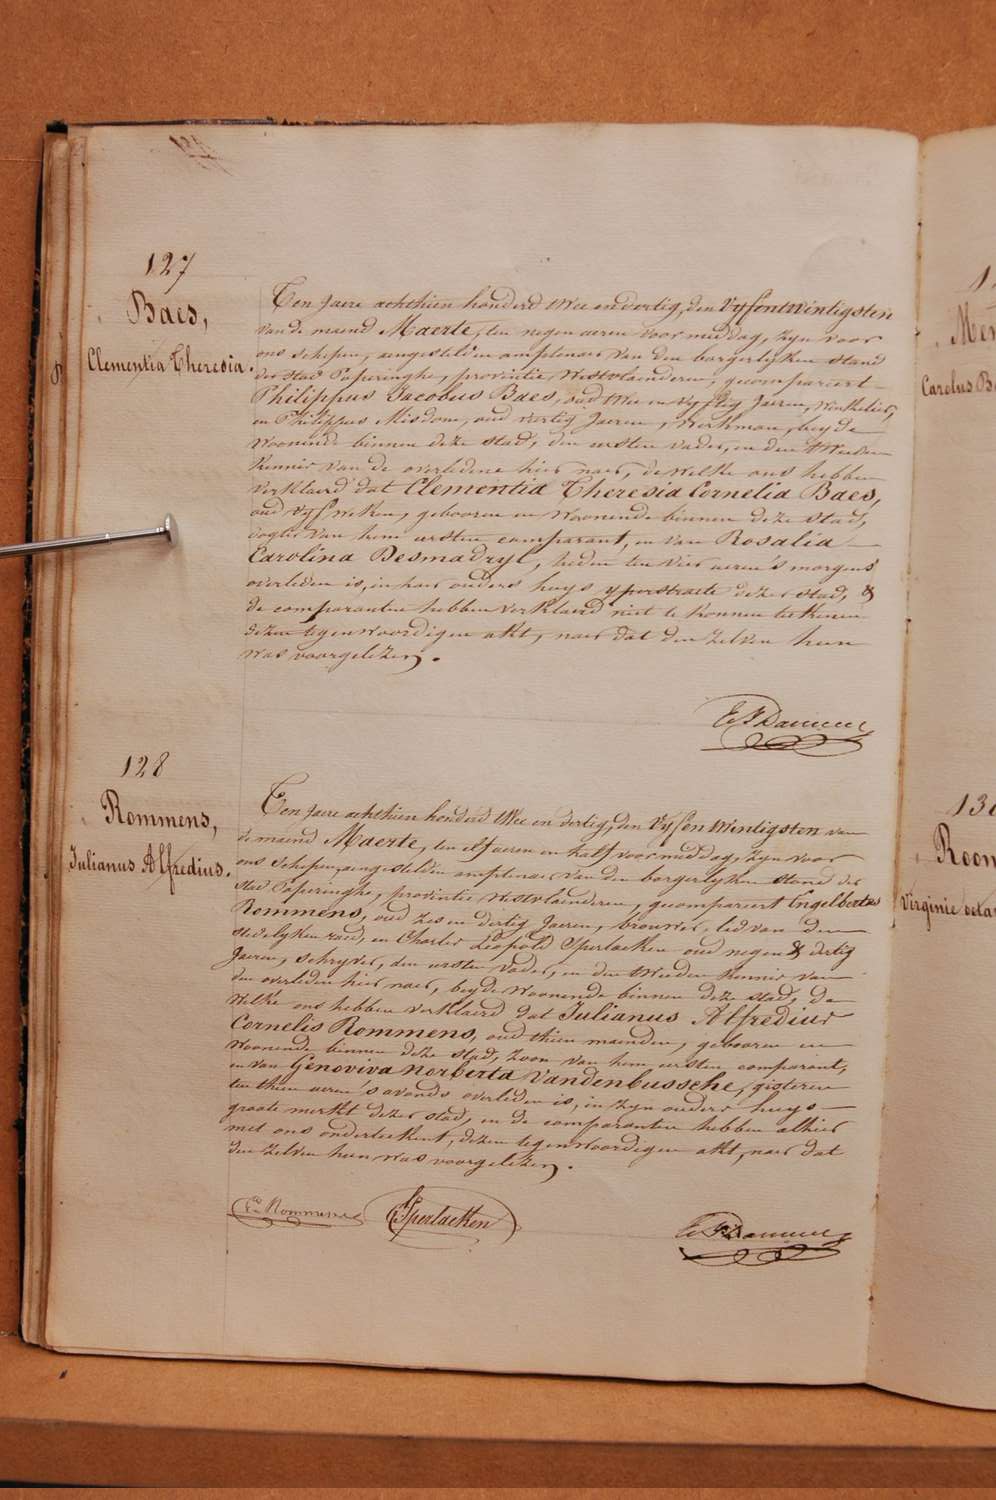 127
Baes,
Clementia Theresia.
Ten jaere achthien honderd twee en dertig, den vyfentwintigsten
van de maend Maerte, ten negen ueren voormiddag, zyn voor
ons schepen, aengestelden amptenaer van den borgerlyken stand
der stad Poperinghe, provintie Westvlaenderen, gecompareert
Philippus Jacobus Baes, oud twee en vyftig Jaeren, Winkelier,
en Philippus Misdom, oud veertig Jaeren, Werkman, beyde
Woonende binnen deze stad, den eersten vader, en den tweeden
Kennis van de overledene hier naer, de welke ons hebben
verklaerd dat Clementia Theresia Cornelia Baes,
oud vyf weken, gebooren en Woonende binnen deze stad,
dogter van hem eersten comparant, en van Rosalia
Carolina Desmadryl, heden ten vier ueren 's morgens
overleden is, in haer ouders huys yperstraete dezer stad, &
de comparanten hebben verklaerd niet te konnen teekenen
dezen tegenwoordigen akt, naer dat den zelven hun
was voorgelezen.
128
Rommens,
Julianus Alfredius.
Ten jaere achthien honderd twee en dertig, den vyfentwintigsten van
de maend Maerte, ten elf ueren en half voormiddag, zyn voor
ons schepen, aengestelden amptenaer van den borgerlyken stand der
stad Poperinghe, provintie Westvlaenderen, gecompareert Engelbertus
Rommens, oud zes en dertig Jaeren, brouwer, lid van den
stedelyken raed, en Charles Léopold Sperlaeken oud negen & dertig
Jaeren, schryver, den eersten vader, en den tweeden Kennis van
den overleden hier naer, beyde woonende binnen deze stad, de
welke ons hebben verklaerd dat Julianus Alfredius
Cornelis Rommens, oud thien maenden, gebooren en
woonende binnen deze stad, zoon van hem eersten comparant,
en van Genoviva Norberta Vandenbussche, gisteren
ten thien ueren 's avonds overleden is, in zyn ouders huys
groote merkt dezer stad, en de comparanten hebben alhier
met ons onderteekent, dezen tegenwoordigen akt, naer dat
den zelven hun was voorgelezen.
En Rommens
Sperlaeken
130
Carolus
Virginie